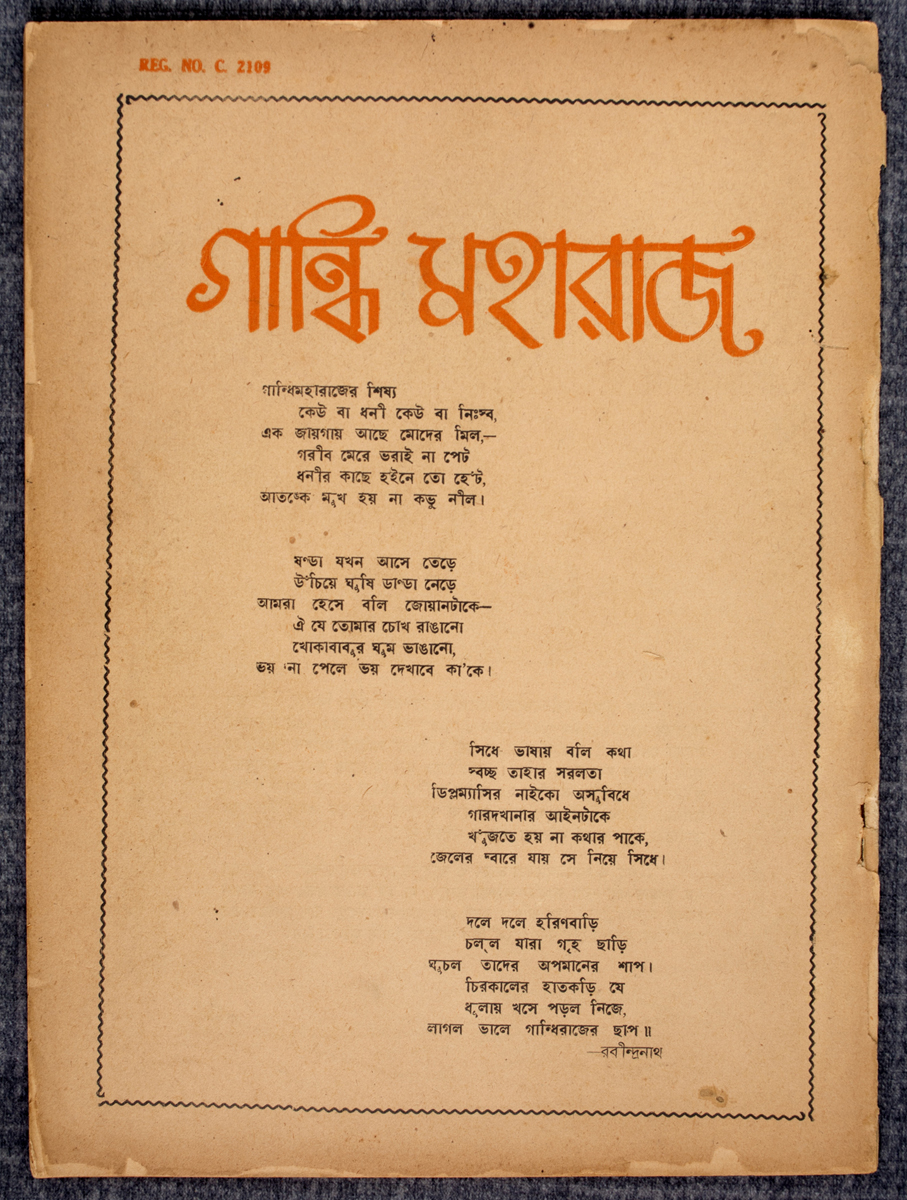 REG. NO. C. 2109
গান্ধি মহারাজ
গান্ধিমহারাজের শিষ্য
কেউ বা ধনী কেউ বা নিঃস্ব,
এক জায়গায় আছে মোদের মিল,—
গরীব মেরে ভরাই না পেট
ধনীর কাছে হইনে তো হেঁট,
আতঙ্কে মুখ হয় না কভু নীল।
ষণ্ডা যখন আসে তেড়ে
উঁচিয়ে ঘুষি ডাণ্ডা নেড়ে
আমরা হেসে বলি জোয়ানটাকে—
ঐ যে তোমার চোখ রাঙানো
খোকাবাবুর ঘুম ভাঙানো,
ভয় না পেলে ভয় দেখাবে কা'কে।
সিধে ভাষায় বলি কথা
স্বচ্ছ তাহার সরলতা
ডিপ্লম্যাসির নাইকো অসুবিধে
গারদখানার আইনটাকে
খুঁজতে হয় না কথার পাকে,
জেলের দ্বারে যায় সে নিয়ে সিধে।
দলে দলে হরিণবাড়ি
চল্‌ল যারা গৃহ ছাড়ি
ঘুচল তাদের অপমানের শাপ।
চিরকালের হাতকড়ি যে
ধুলায় খসে পড়ল নিজে,
লাগল ভালে গান্ধিরাজের ছাপ॥
—রবীন্দ্রনাথ